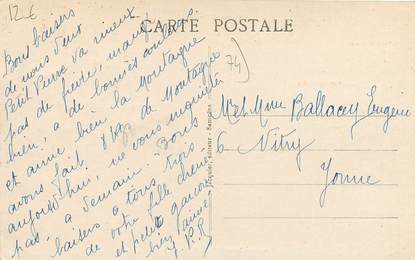 12 €
CARTE POSTALE
74
Bons baisers
de nous deux
Petit Pierre va mieux
pas de fièvre, mange
bien, a de bonnes couleurs.
et aime bien la Montagne
avons fait de Montagne
aujourd'hui, ne vous inquiétez
pas à demain. Bons
baisers à tous trois
de votre fille chérie
et petit garçon
bien aimé
J. P. R
M et Mme Ballacey Eugène
à Vitry
Yonne